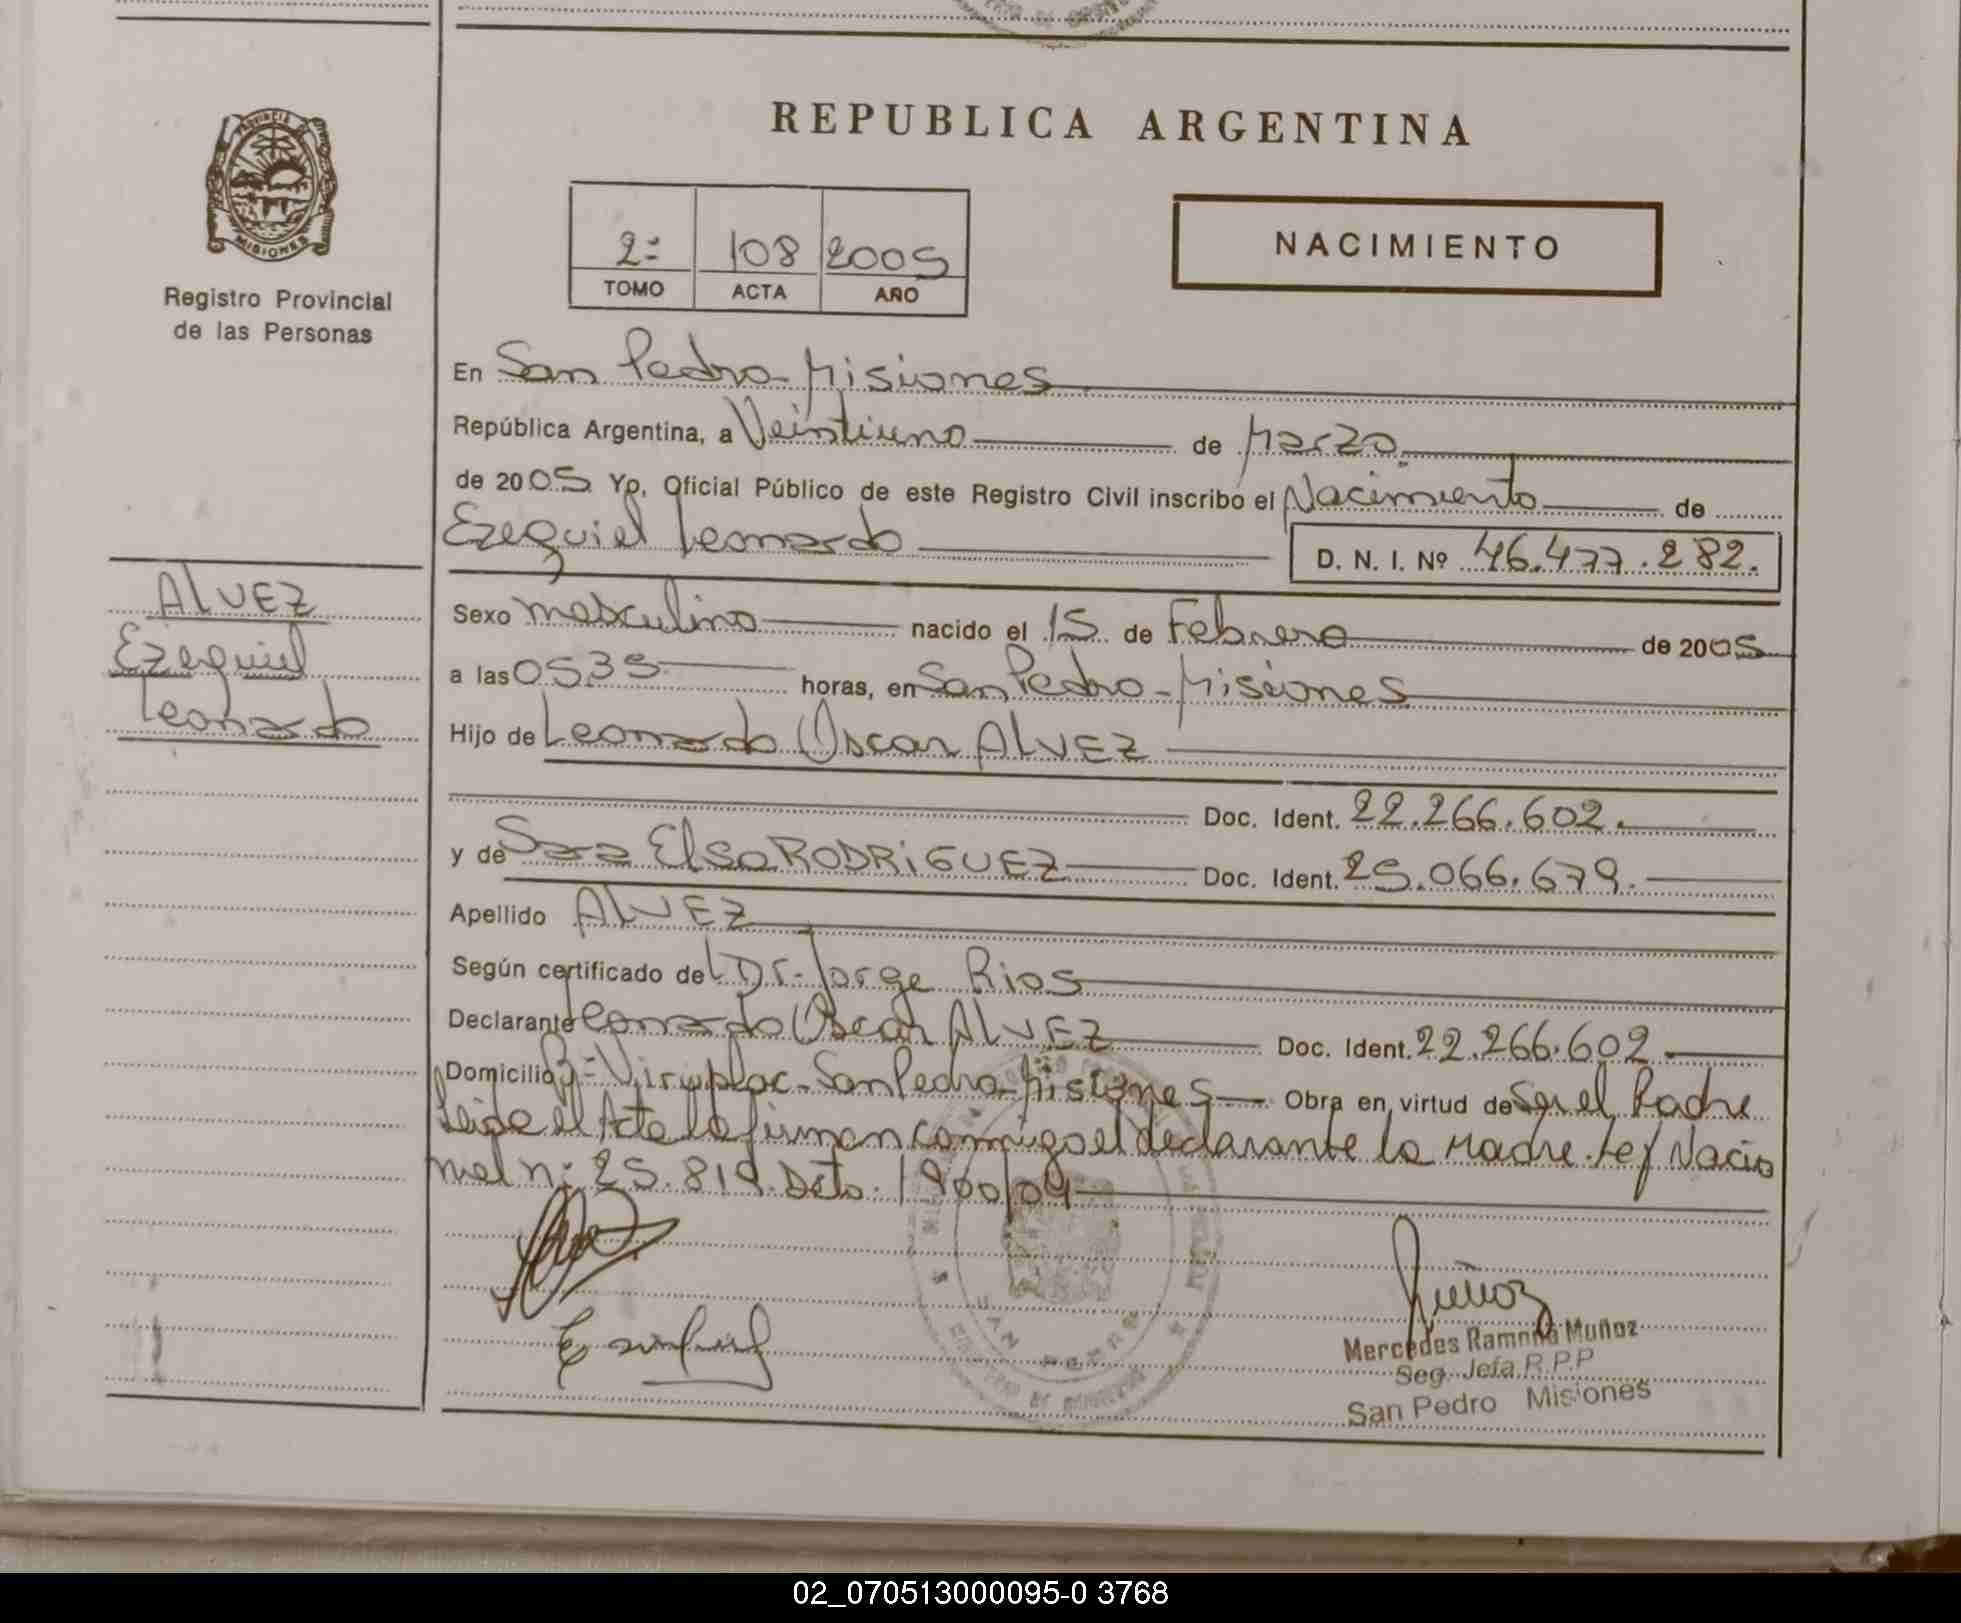 REPUBLICA ARGENTINA
PROVINCIA DE
MISIONES
Registro Provincial
de las Personas
2º 108 2005
TOMO ACTA AÑO
NACIMIENTO
En San Pedro-Misiones
República Argentina, a Veintiuno de Marzo.
de 2005 Yo, Oficial Público de este Registro Civil inscribo el Nacimiento de
Ezequiel Leonardo D. N. I. Nº 46.477.282.
ALVEZ
Ezequiel
Leonardo
Sexo masculino nacido el 15 de Febrero de 2005
a las 0535 horas, en San Pedro-Misiones
Hijo de Leonardo Oscar ALVEZ
Doc. Ident. 22.266.602.
y de Sara Elsa RODRIGUEZ Doc. Ident. 25.066.679.
Apellido ALVEZ
Según certificado del Dr. Jorge Rios
Declarante Leonardo Oscar ALVEZ Doc. Ident. 22.266.602.
Domicilio Bº Viruplac-San Pedro-Misiones Obra en virtud de Ser el Padre
Leida el Acta la firman conmigo el declarante la Madre. Ley Nacio
nal nº 25.819. Dcto. 1900/04
Muñoz
Mercedes Ramona Muñoz
Seg. Jefa R.P.P
San Pedro Misiones
SAN PEDRO
02_070513000095-0 3768